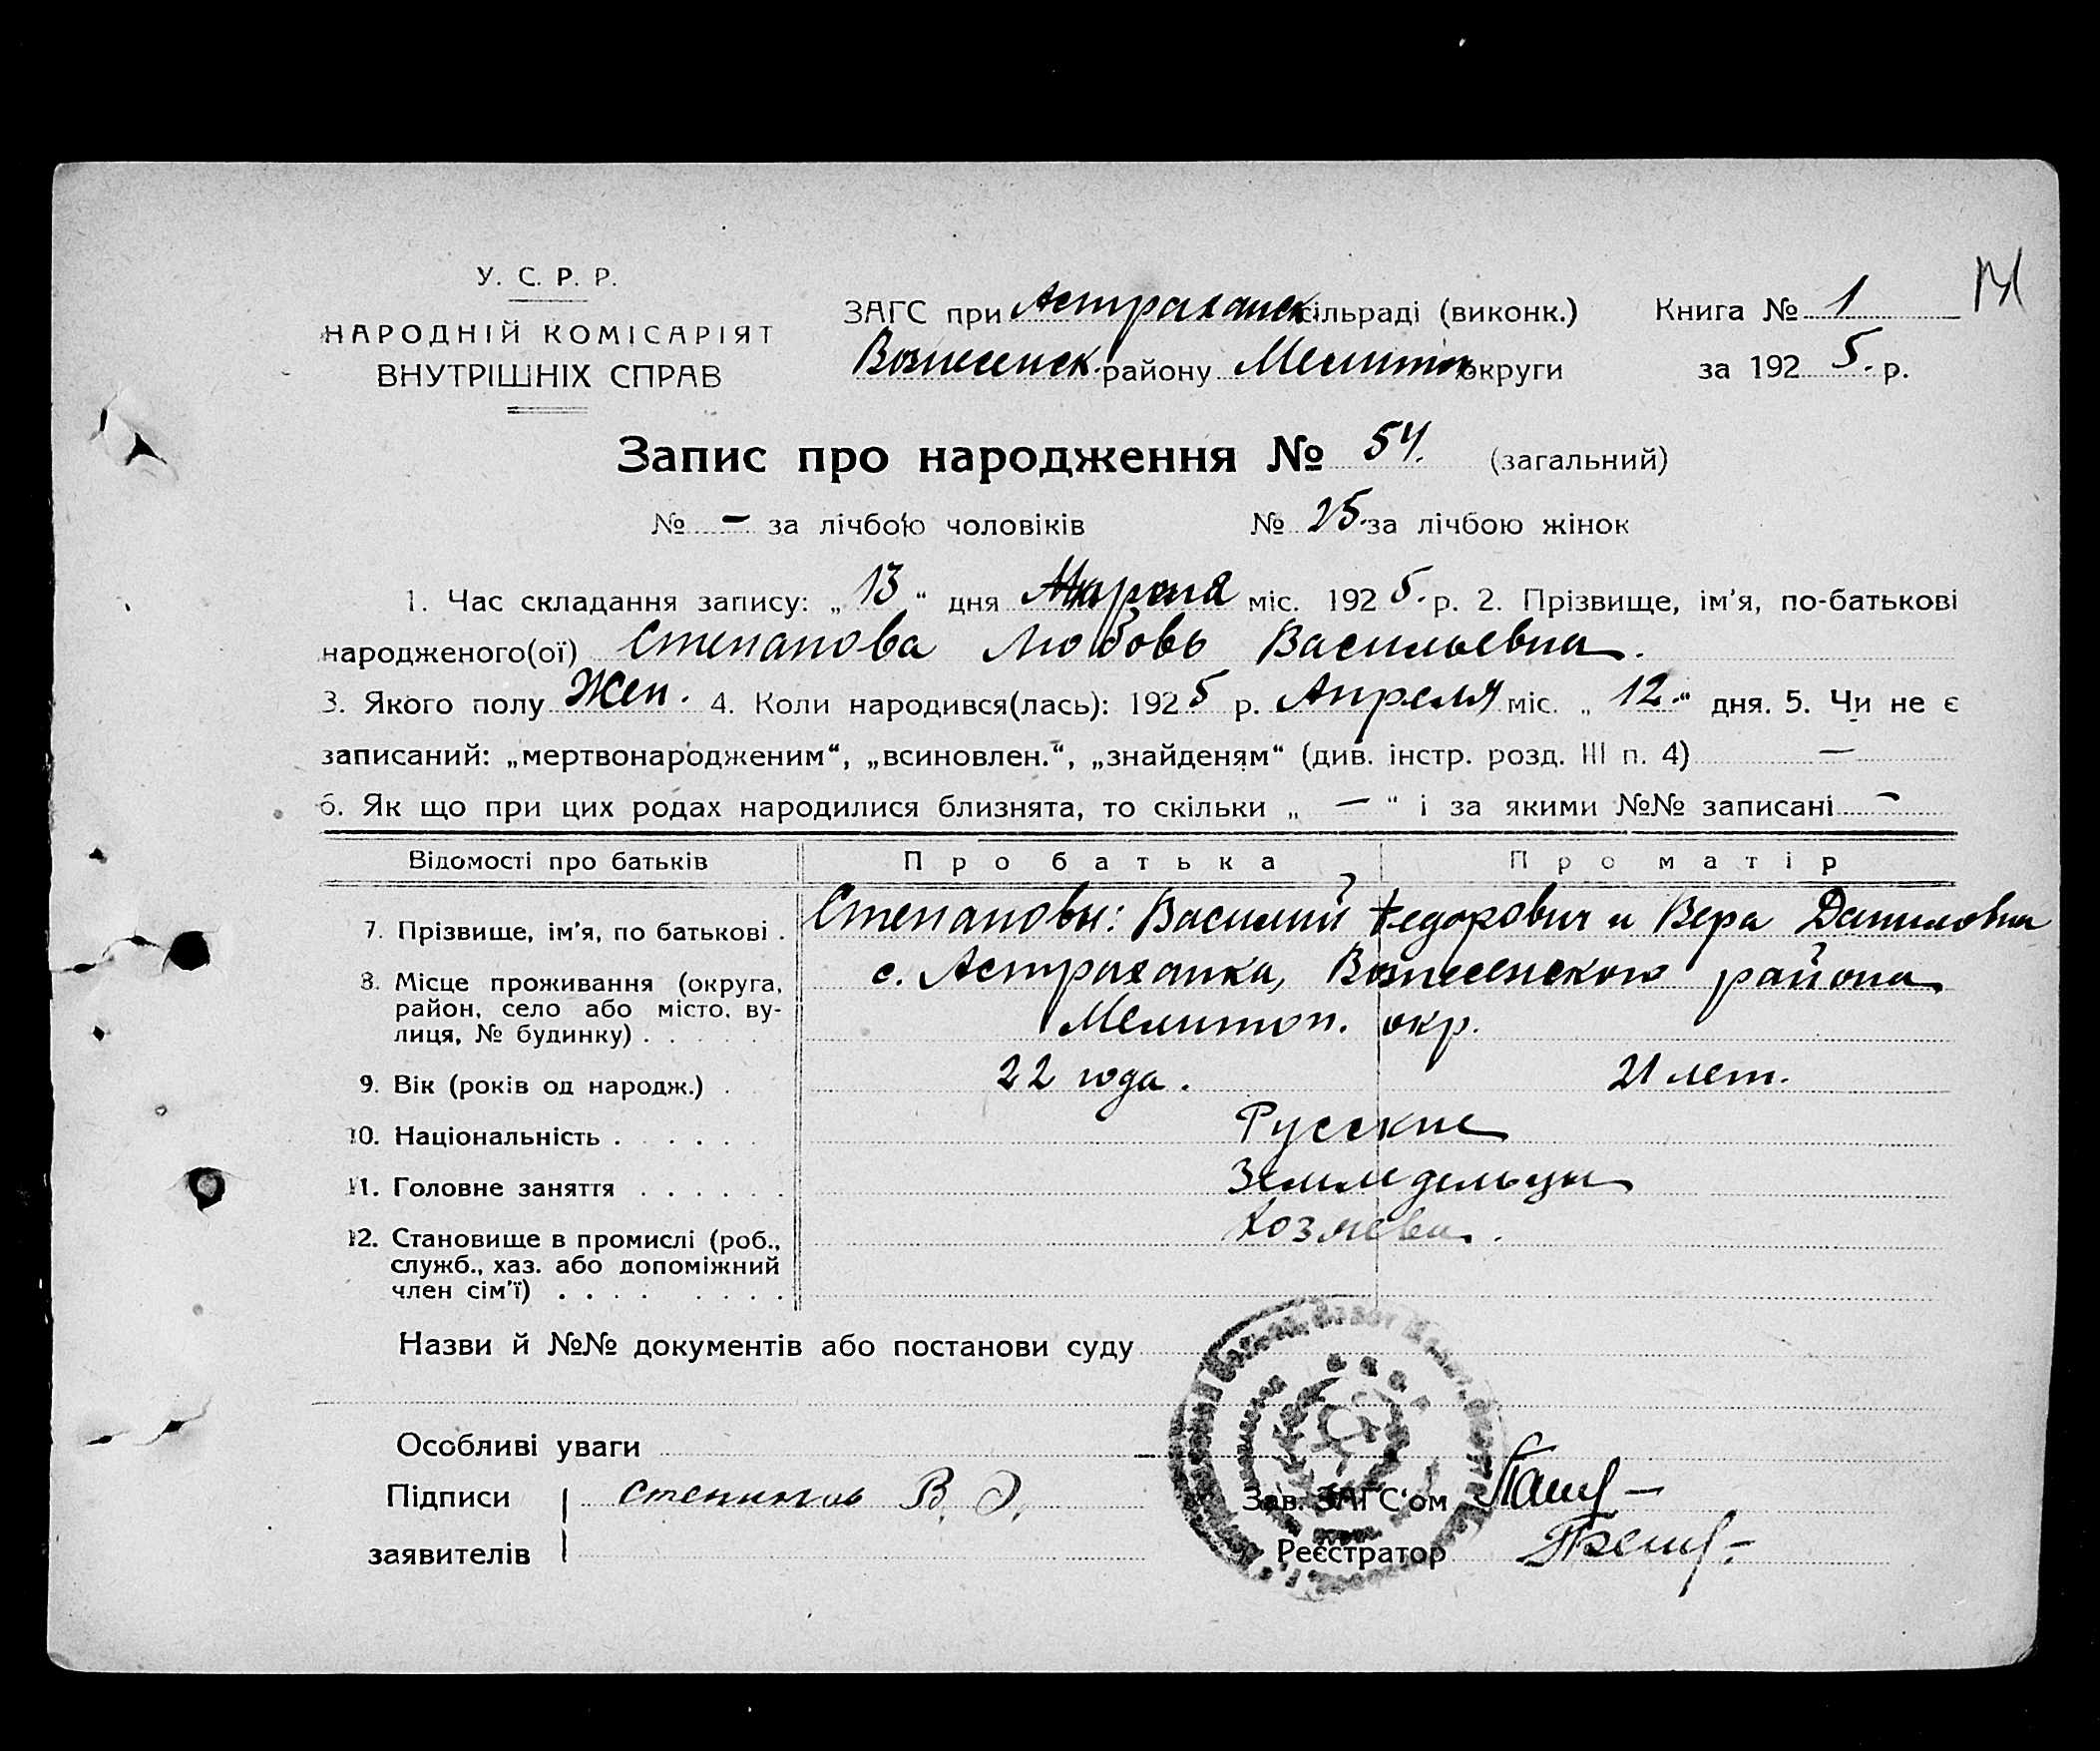 У. С. Р. Р.
НАРОДНІЙ КОМІСАРІЯТ
ВНУТРІШНІХ СПРАВ
ЗАГС при Астраханск сільраді (виконк.)
Вознесенск. району Мелитоп округи
Книга № 1
за 1925. р.
Запис про народження № 54. (загальний)
№ – за лічбою чоловіків № 25. за лічбою жінок
1. Час складання запису: „13“ дня міс. 1925. р. 2. Прізвище, ім'я, по-батькові
народженого(ої) Степанова Любовь Васильевна.
3. Якого полу Жен. 4. Коли народився(лась): 1925 р. Апреля міс. „12.“ дня. 5. Чи не є
записаний: „мертвонародженим“, „всиновлен.“, „знайденям“ (див. інстр. розд. III п. 4) —
6. Як що при цих родах народилися близнята, то скільки „ — “ і за якими №№ записані –
Відомості про батьків Про батька Про матір
7. Прізвище, ім'я, по батькові . Степановы: Василий Федорович и Вера Даниловна
8. Місце проживання (округа, с. Астраханка, Вознесенского района
район, село або місто, ву-
лиця, № будинку) . . . . . Мелитоп. окр.
9. Вік (років од народж.) . 22 года. 21 лет.
10. Національність . . . . . . Русские
11. Головне заняття . . . . . . Земледельцы
12. Становище в промислі (роб., Хозяева.
служб., хаз. або допоміжний
член сім'ї) . . . . . . . .
Назви й №№ документів або постанови суду
Особливі уваги
Підписи Степанов В. Ф.
заявителів
Зав. ЗАГС'ом
Реєстратор